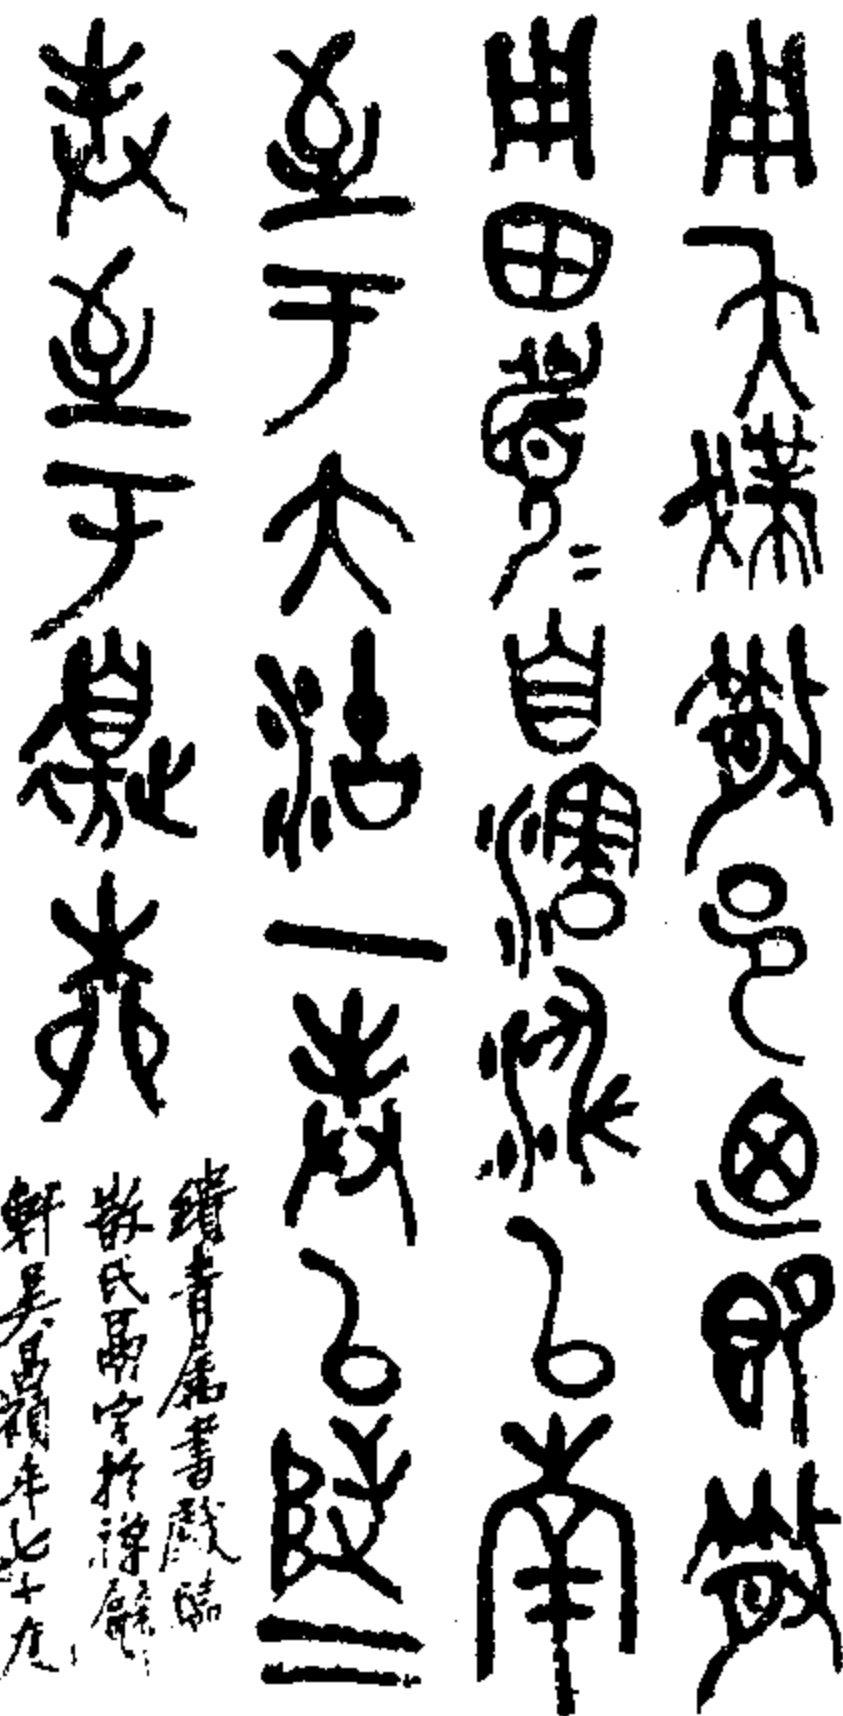 用夨撲散邑迺即散
用田眉自瀗涉以南
至于大沽一奉以陟二
奉至于邊柳
青屬書戲臨
散氏鬲字於禪甓
軒吳昌碩年七十九